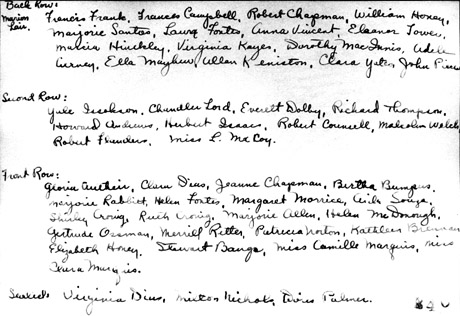 Back Row:
Marion Lair. Francis Frank, Frances Campbell, Robert Chapman, William Honey,
Marjorie Santos, Laura Fortes, Anna Vincent, Eleanor Tower,
Maria Hinckley, Virginia Keyes, Dorothy MacInnis, Adele
Airney, Ella Mayhew, Allan Keniston, Clara Yates, John
Second Row:
Yale Issokson, Chandler Lord, Everett Dolby, Richard Thompson,
Howard Andrews, Herbert Isaacs, Robert Counsell, Malcolm
Robert Flanders, Miss L. McCoy.
Front Row:
Gloria Authier, Clara Dias, Jeanne Chapman, Bertha Bumpus,
Marjorie Rabbitt, Helen Fortes, Margaret Morrice, Souza,
Shirley Craig, Ruth Craig, Marjorie Allen, Helen McDonough,
Gertrude Ossman, Merrill Retter, Patricia Norton, Kathleen Brennan
Elizabeth Honey, Stewart Bangs, Miss Camille Marquis, Miss
Marquis.
Virginia Dias, Milton Nichols, Doris Palmer.